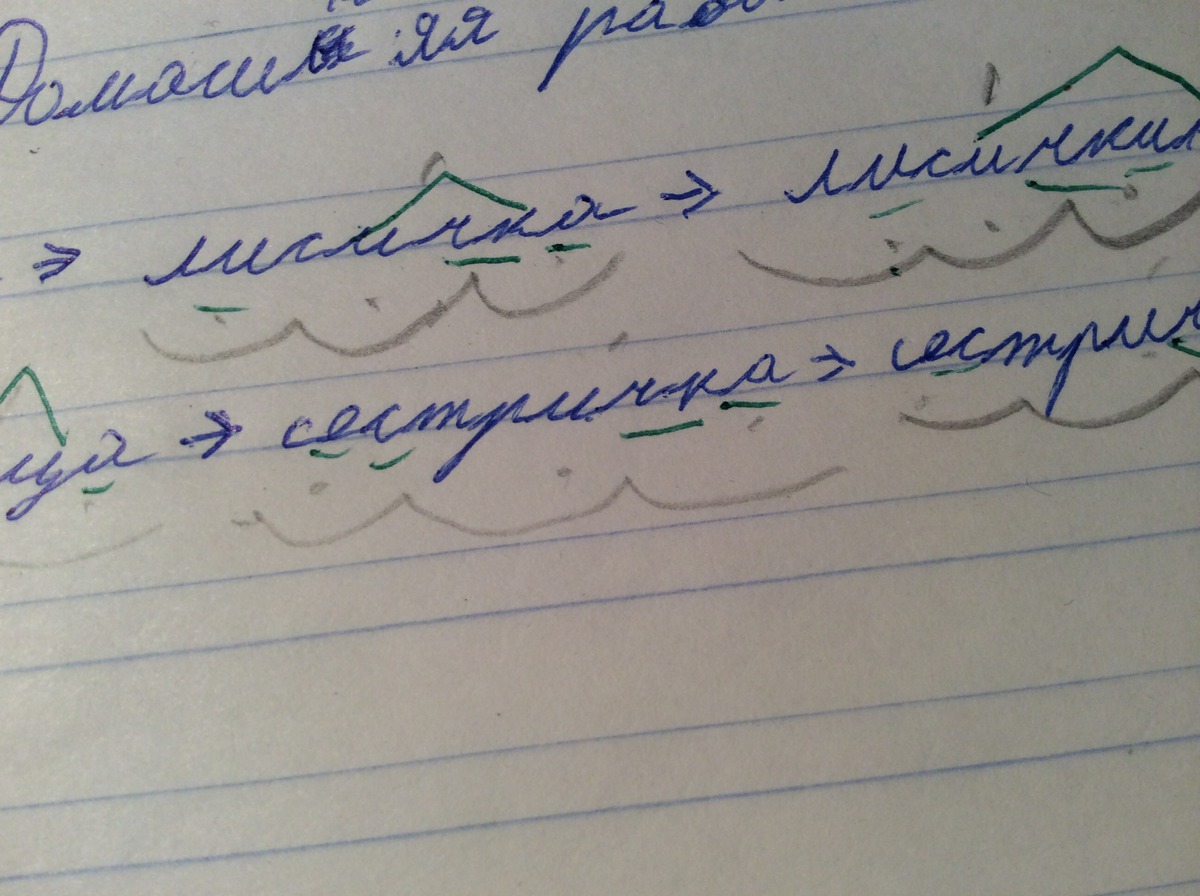 Домашняя
⇒ лисичка ⇒ лисички
ца ⇒ сестричка ⇒ сестрич